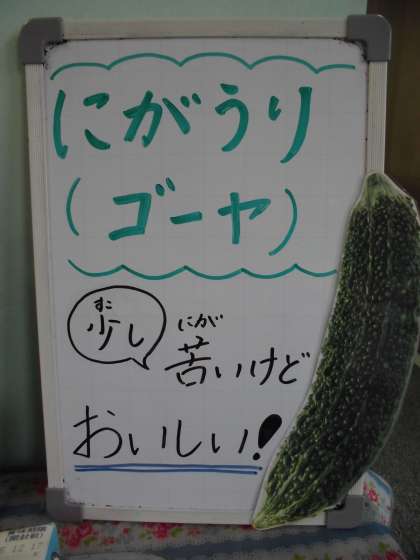 にがうり
(ゴーヤ)
すこ
少し
にが
苦いけど
おいしい!
12.17